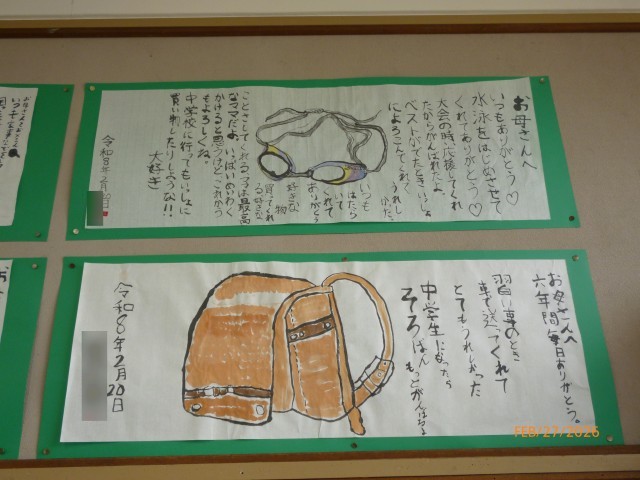 お母さんへ
いつもありがとう♡
水泳をはじめさせて
くれてありがとう♡
大会の時、応援してくれ
たからがんばれたよ。
ベストがでたときいっしょ
によろこんでくれて
うれし
かった。
いつも
はたら
いて
くれて
ありがとう
好きな
物
買ってくれ
る好きな
ことさしてくれるママは最高
なママだよ。いっぱいめいわく
かけると思うけどこれから
もよろしくね。
中学校に行ってもいっしょに
買い物したりしような!!
大好き
令和8年2月20日
お母さんへ
六年間毎日ありがとう。
習い事のとき
車で送ってくれて
とてもうれしかった
中学生になったら
そろばん
もっとがんばるよ
令和8年2月20日
FEB/27/2026